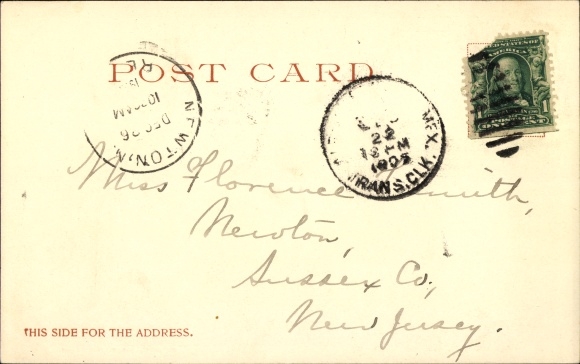 POST CARD
UNITED STATES OF
AMERICA
1 1
POSTAGE
ONE CENT
NEWTON, N.
REC
10 AM
DEC 26
MEX.
22
1905
TRANS. CLK.
Miss Florence Smith,
Newton,
Sussex Co,
New Jersey.
THIS SIDE FOR THE ADDRESS.